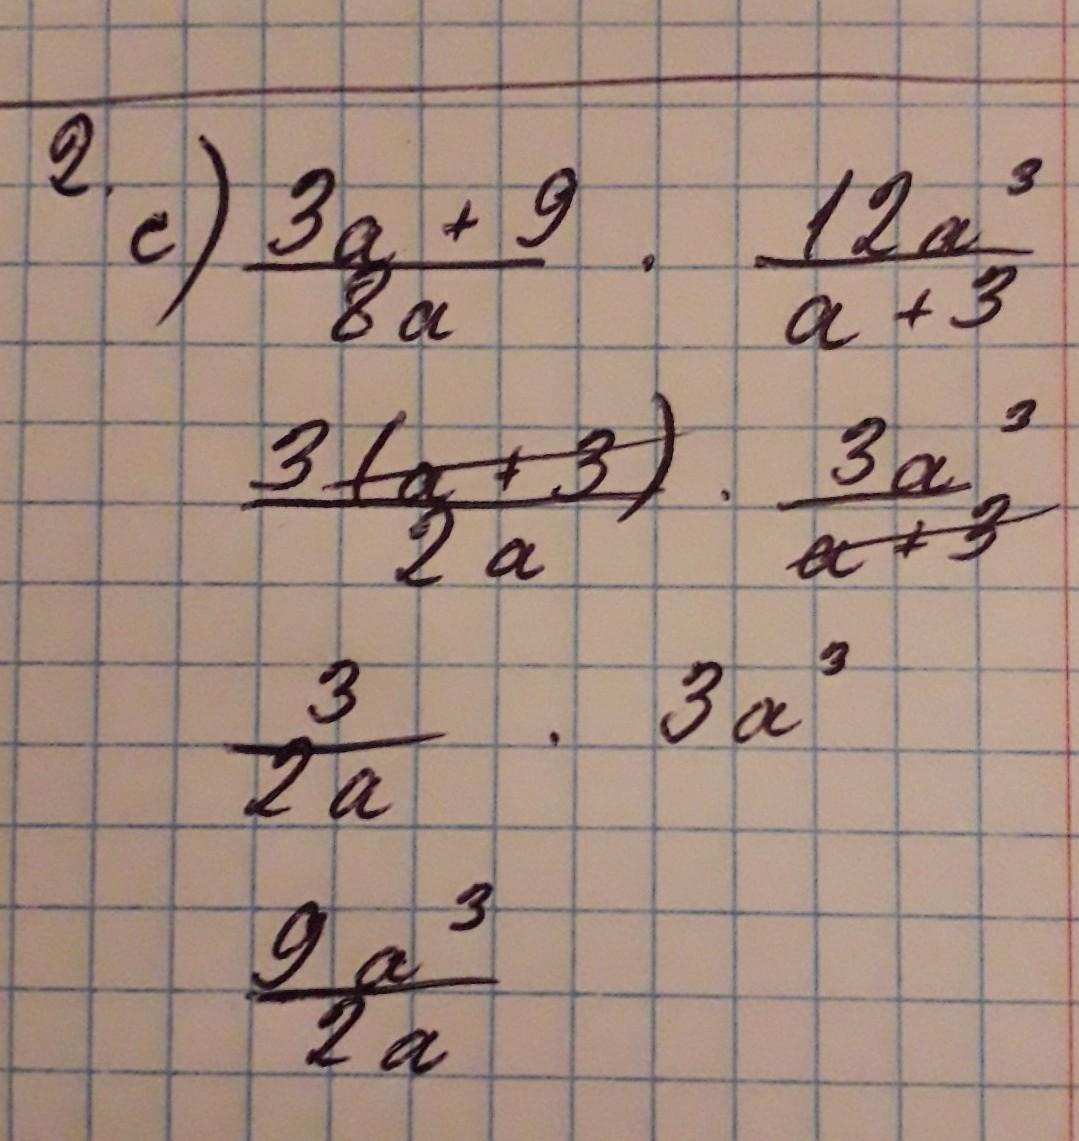 2.
c) (3a + 9)/(8a) · (12a³)/(a + 3)
(3(a + 3))/(2a) · (3a³)/(a + 3)
3/(2a) · 3a³
(9a³)/(2a)